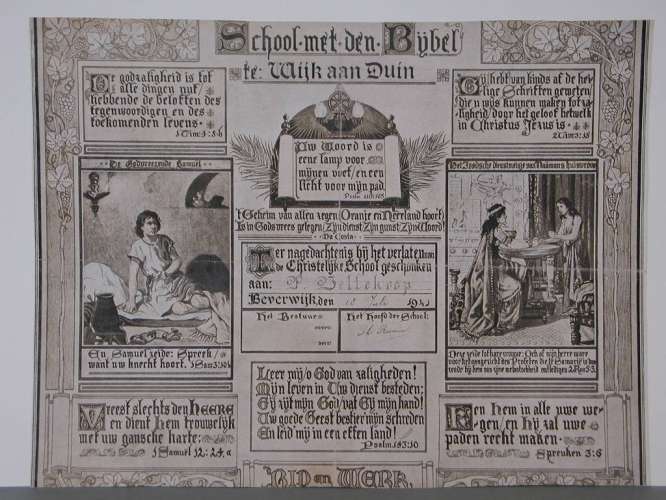 School met den Bybel
te: Wijk aan Duin
De godzaligheid is tot
alle dingen nut/
hebbende de beloften des
tegenwoordigen en des
toekomenden levens.
1 Tim: 4: 8b
Gij hebt van kinds af de hei-
lige Schriften geweten/
die u wijs kunnen maken tot za-
ligheid/ door het geloof hetwelk
in Christus Jezus is.
2 Tim: 3: 15
Uw Woord is
eene lamp voor
mijnen voet/en een
licht voor mijn pad.
Psalm 119:105
't Geheim van allen zegen/Oranje en Neerland hoort/
Is in Gods vrees gelegen/Zijn dienst/Zijn gunst/Zijn Woord!
Da Costa
De Godvreezende Samuel
En Samuel zeide: Spreek/
want uw knecht hoort. 1 Sam: 3: 10b
Ter nagedachtenis bij het verlaten van
de Christelijke School geschonken
aan: P. Beltekoop
Beverwijk den 10 Juli 194
Het Bestuur:
Het Hoofd der School:
Het Joodsche dienstmeisje van Naämans huisvrouw
Deze zeide tot hare vrouw: Och of mijn heere ware
voor het aangezicht des Profeten die te Samaria is/dan
zoude hij hem van zijne melaatschheid ontledigen. 2 Kon: 5:3.
Vreest slechts den HEERE
en dient hem trouwelijk
met uw gansche harte;
1 Samuel 12: 24.a
Leer mij/o God van zaligheden!
Mijn leven in Uw dienst besteden;
Gij zijt mijn God/vat Gij mijn hand!
Uw goede Geest bestier mijn schreden
En leid mij in een effen land!
Psalm 143:10
Ken hem in alle uwe we-
gen/ en hij zal uwe
paden recht maken.
Spreuken 3:6
BID en WERK